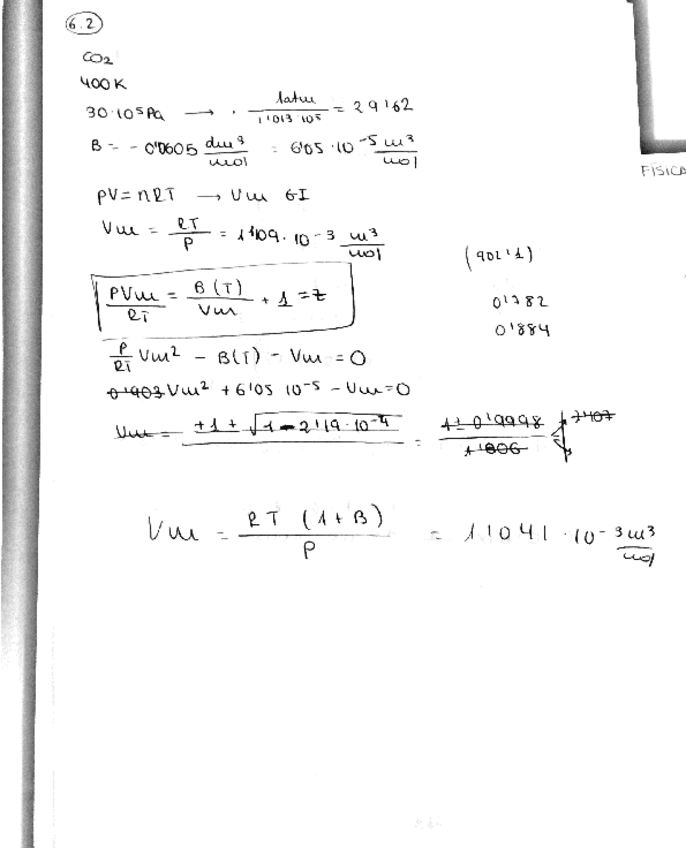 6.2
CO2
400K
30·10^5 Pa → · 1atm / 1'013·10^5 = 29'62
B = -0'0605 dm^3/mol = 6'05·10^-5 m^3/mol
FÍSICA
PV = nRT → Vm GI
Vm = RT/P = 1'109·10^-3 m^3/mol
(902'1)
PVm/RT = B(T)/Vm + 1 = z
0'782
0'884
P/RT Vm^2 - B(T) - Vm = 0
0'903 Vm^2 + 6'05 10^-5 - Vm = 0
Vm = +1 ± √(1 - 2'19·10^-4) = 1 ± 0'9998 / 1'806 =
Vm = RT (1 + B) / P = 1'1041·10^-3 m^3/mol